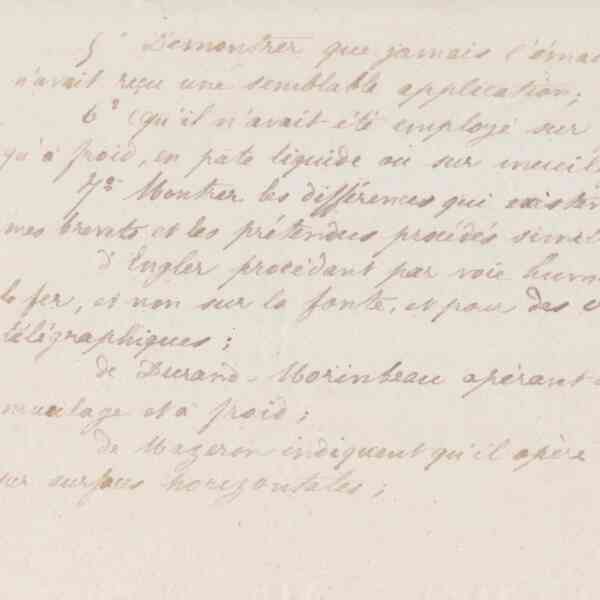 5° Démontrer que jamais l'émai
n'avait reçu une semblable application;
6° Qu'il n'avait été employé sur
qu'à froid, en pâte liquide ou sur
7° Montrer les différences qui existen
mes brevets et les prétendus procédés simil
d'Engler procédant par voie hum
le fer, et non sur la fonte, et pour des
télégraphiques;
de Durand-Morinbeau opérant
moulage et à froid;
de Mazeron indiquent qu'il opère
sur surfaces horizontales;